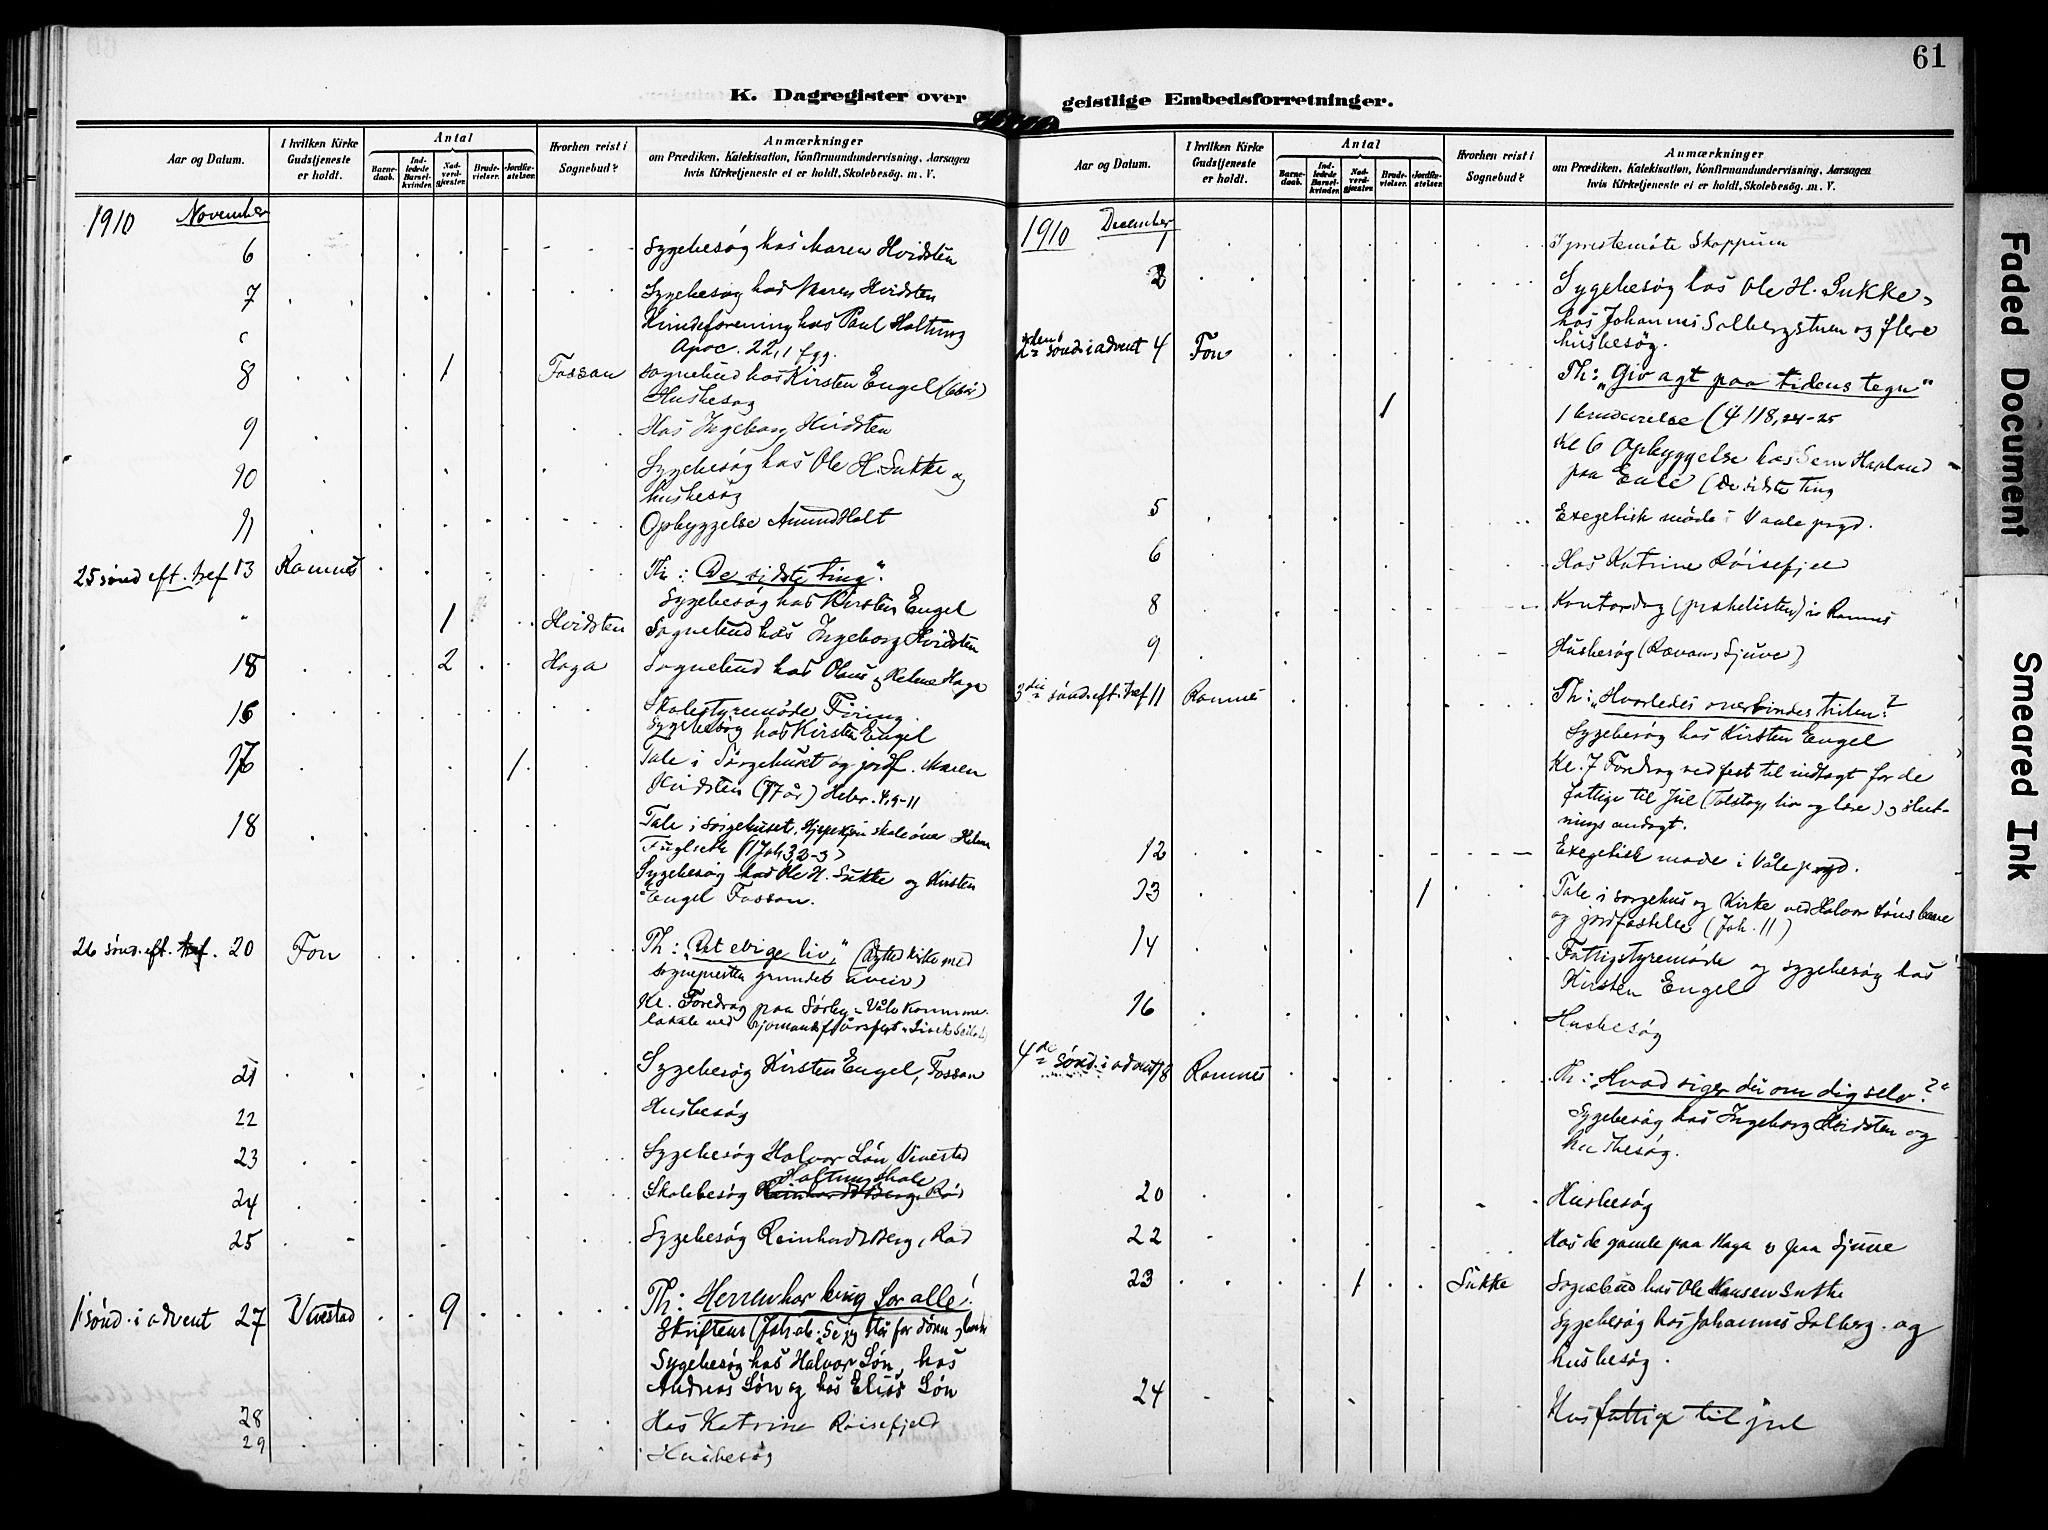 61
K. Dagregister over
geistlige Embedsforretninger.
Aar og Datum.
I hvilken Kirke Gudstjeneste er holdt.
Antal
Barnedaab.
Indledede Barselkvinder.
Nadverdgjester.
Brudevielser.
Jordfæstelser.
Hvorhen reist i Sognebud?
Anmærkninger
om Prædiken, Katekisation, Konfirmandundervisning, Aarsagen
hvis Kirketjeneste ei er holdt, Skolebesøg. m. V.
1910 November
6 Sygebesøg hos Maren Hvidsten
7 Sygebesøg hos Maren Hvidsten
Kvindeforening hos Paul Holtung
Apoc. 22,1 fgg.
8 1 Fossan Sognebud hos Kirsten Engel
Husbesøg
9 Hos Ingeborg Hvidsten
10 Sygebesøg hos Ole H. Sukke og
husbesøg
11 Opbyggelse Amund Holt
25 sønd eft. tref 13 Ramnes Th: "De sidste ting".
Sygebesøg hos Kirsten Engel
" 1 Hvidsten Sognebud hos Ingeborg Hvidsten
15 2 Haga Sognebud hos Olaus og Helene Haga
16 Skolestyremøde Foring.
Sygebesøg hos Kirsten Engel
17 1 Tale i Sørgehuset og jordf. Maren
Hvidsten (77 år) Hebr. 4,9-11
18 Tale i sørgehuset,
Fuglseth (1 Joh 3,2-3)
Sygebesøg hos Ole H. Sukke og Kirsten
Engel Fossan.
26 sønd. eft. tref. 20 Fon Th: "Det evige liv" (byttet kirke med
sognepresten grundet uveir)
Kl. Foredrag paa Sørby - Våle Kommune-
lokale ved
21 Sygebesøg Kirsten Engel, Fossan
22 Husbesøg
23 Sygebesøg Halvor Løn Vivestad
Holtung skole
24 Skolebesøg Reinhardt Berg, Rød
25 Sygebesøg Reinhardt Berg, Rød
1 sønd. i advent 27 Vivestad 9 Th: "Herren har bring for alle".
Skriftem (Joh. ab: Se jeg står for døren og banker
Sygebesøg hos Halvor Løn, hos
Andreas Løn og hos Elias Løn
28 Hos Katrine Røisefjeld
29 Husbesøg
Aar og Datum.
I hvilken Kirke Gudstjeneste er holdt.
Antal
Barnedaab.
Indledede Barselkvinder.
Nadverdgjester.
Brudevielser.
Jordfæstelser.
Hvorhen reist i Sognebud?
Anmærkninger
om Prædiken, Katekisation, Konfirmandundervisning, Aarsagen
hvis Kirketjeneste ei er holdt, Skolebesøg. m. V.
1910 December
1 I prestemøte Skoppum
2 Sygebesøg hos Ole H. Sukke,
hos Johannes Solbergstuen og flere
husbesøg.
2den sønd. i advent 4 Fon Th: "Giv agt paa tidens tegn"
1 1 brudevielse (ψ 118,24-25
Kl 6 Opbyggelse hos Sem Hapland
paa (De sidste ting
5 Exegetisk møde i Vaale prgd.
6 Hos Katrine Røisefjeld
8 Kontordag i Ramnes
9 Husbesøg (Rævan, Sjuve)
3die sønd. eft. tref 11 Ramnes Th: "Hvorledes overvindes tvilen?"
Sygebesøg hos Kirsten Engel
Kl. 7 Foredrag ved fest til indtægt for de
fattige til Jul (Tolstoy, liv og lære) og slut-
nings andagt.
12 Exegetisk møde i Våle prgd.
13 1 Tale i sørgehus og Kirke ved Halvor Løns baare
og jordfæstelse (Joh. 11)
14 Fattigstyremøde og sygebesøg hos
Kirsten Engel
16 Husbesøg
4de sønd. i advent 18 Ramnes Th: "Hvad siger du om dig selv?"
Sygebesøg hos Ingeborg Hvidsten og
husbesøg.
20 Husbesøg
22 Hos de gamle paa Haga og paa Sjuve
23 1 Sukke Sognebud hos Ole Hansen Sukke
Sygebesøg hos Johannes Solberg og
husbesøg.
24 Hus fattige til jul
Faded Document
Smeared Ink